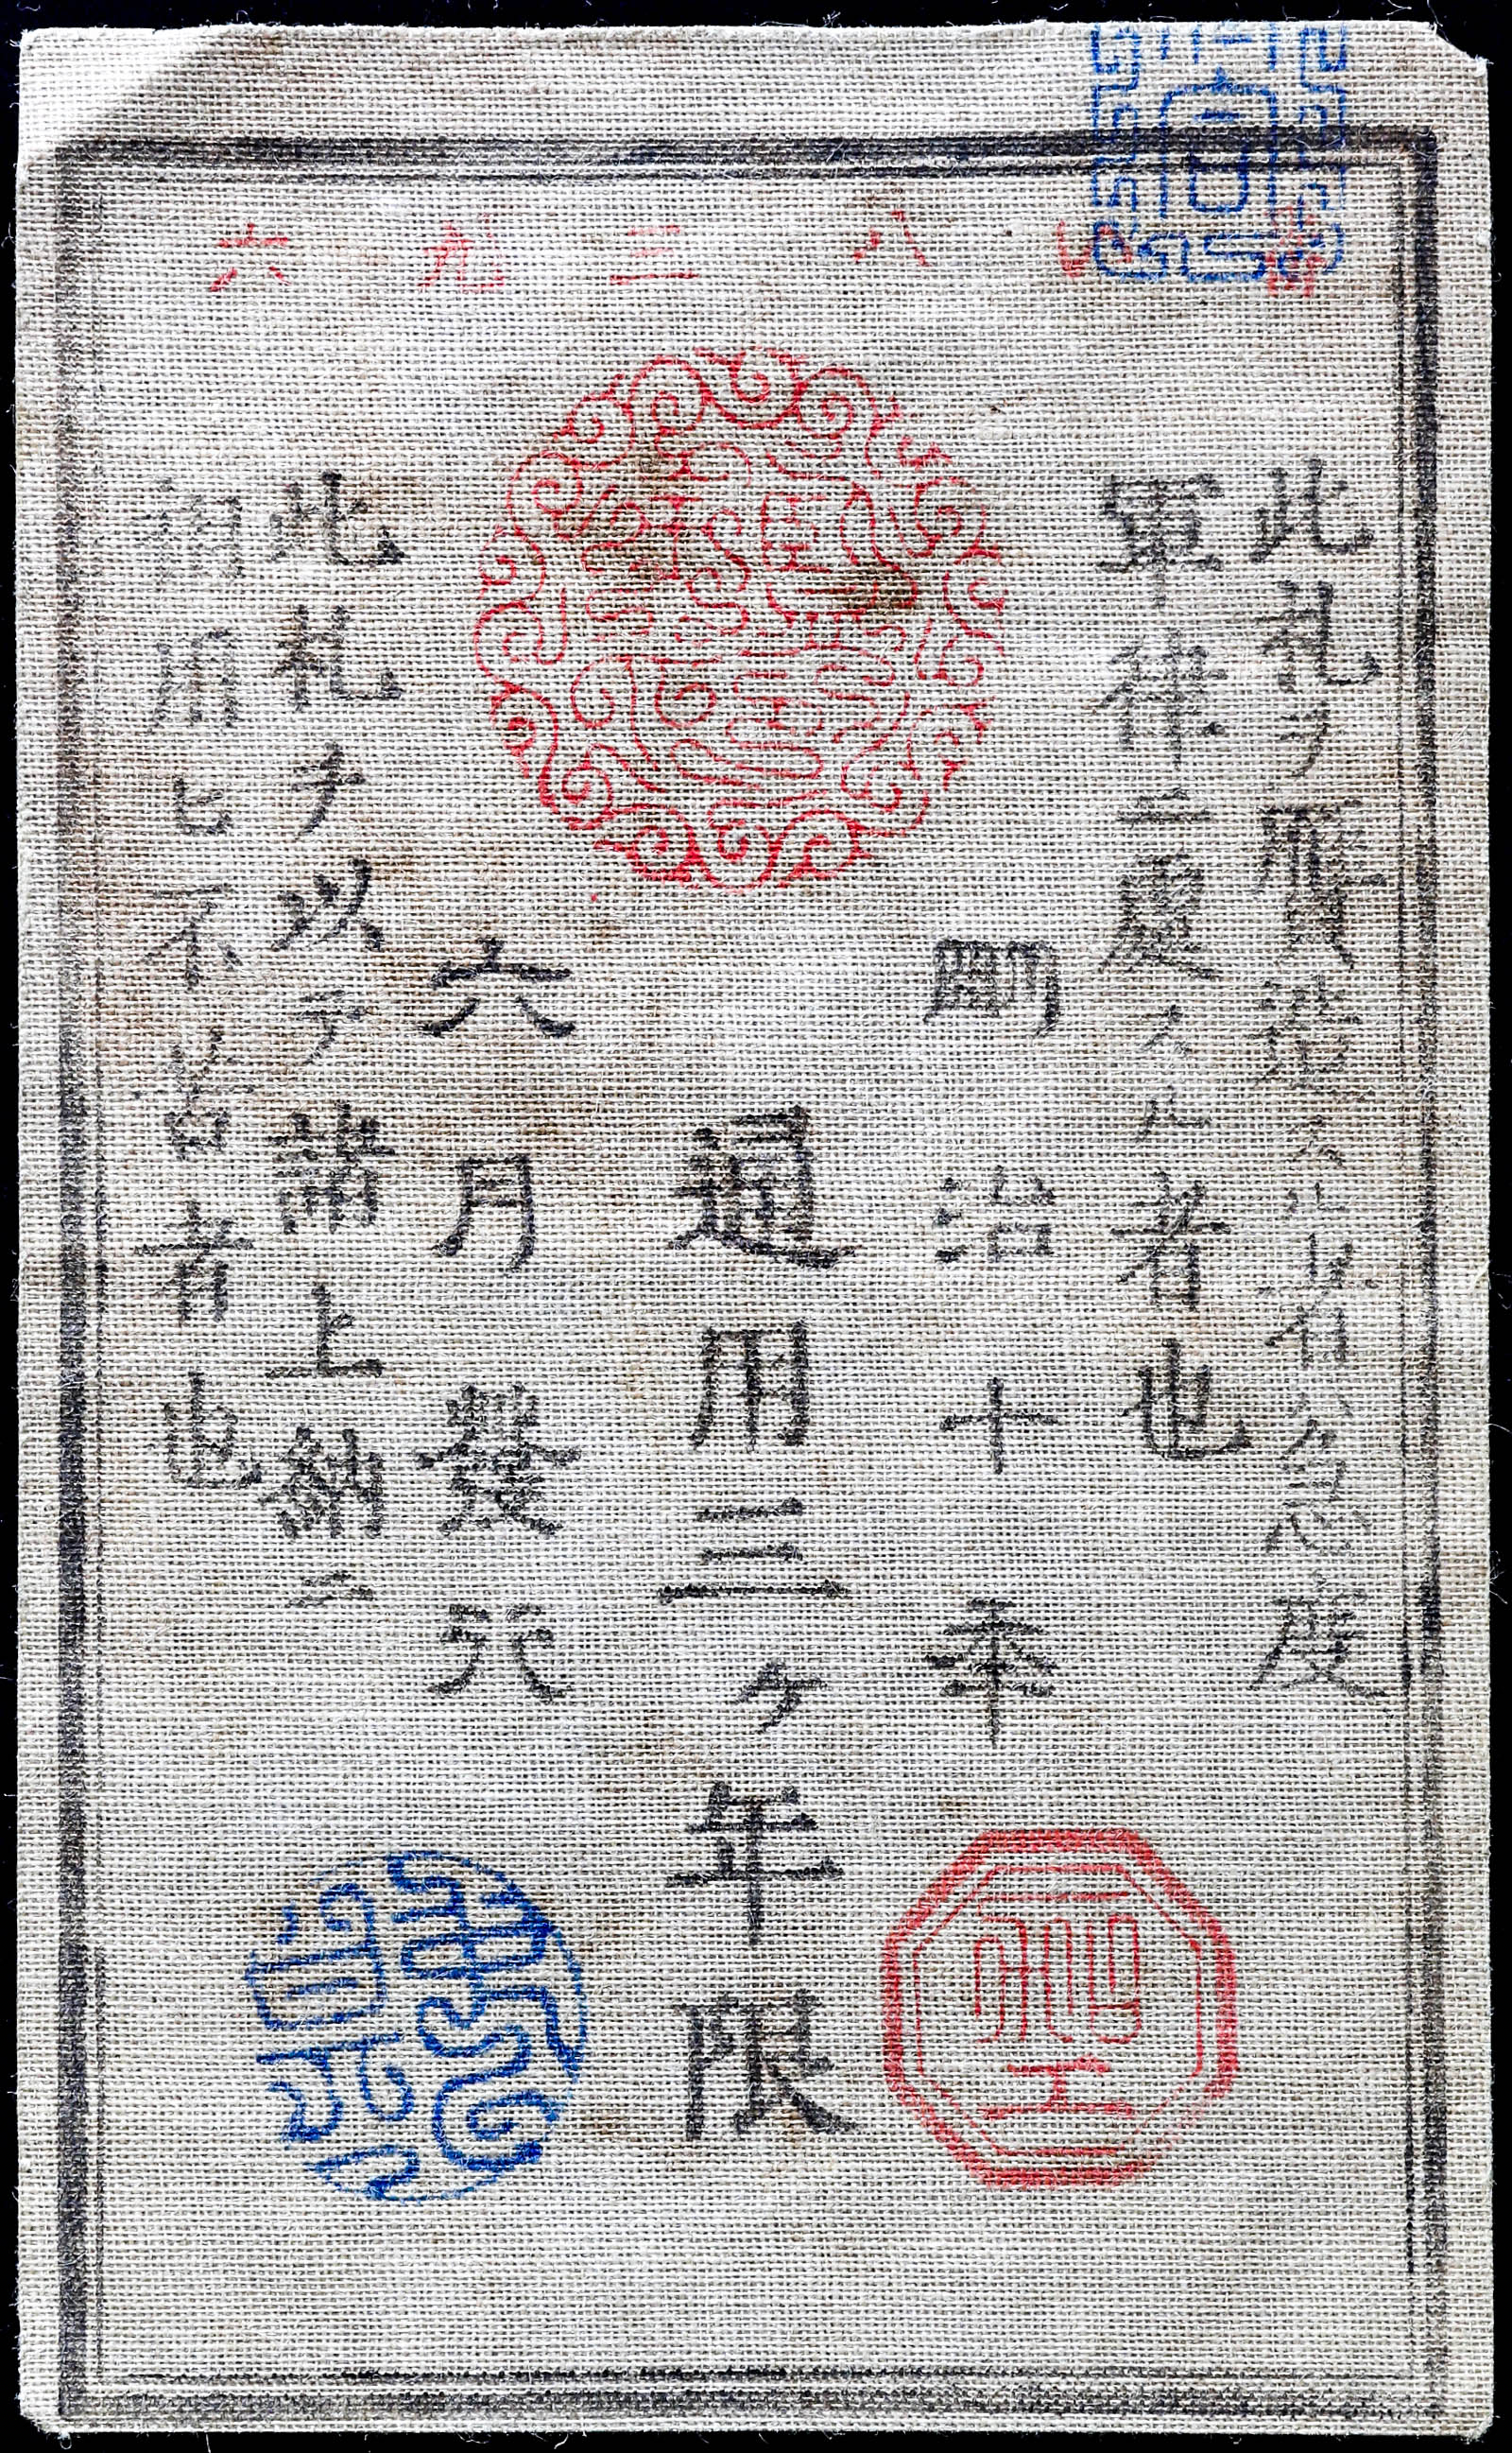 八三九六
此札ヲ贋造スル者ハ急度
軍律ニ處スル者也
朙治十秊
通用三ヶ年限
六月發行
此札ヲ以テ諸上納ニ
相用ヒ不苦者也